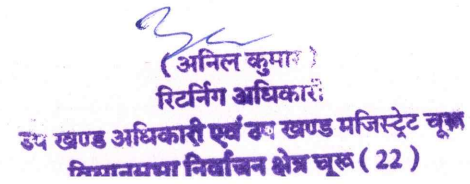 (अनिल कुमार)
रिटर्निंग अधिकारी
उप खण्ड अधिकारी एवं उप खण्ड मजिस्ट्रेट चूरू
विधानसभा निर्वाचन क्षेत्र चूरू ( 22 )